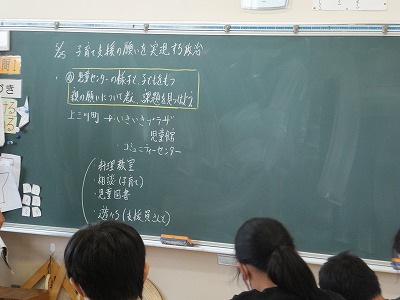 5/25 子育て支援の願いを実現する政治
・㋱ 児童センターの様子や、子どもをもつ
親の願いについて考え、課題を見つけよう
上三川町 → いきいきプラザ
児童館
・コミュニティーセンター
・料理教室
・相談(子育て)
・児童図書
・遊べる(支援員さんと)
づき
ける
る